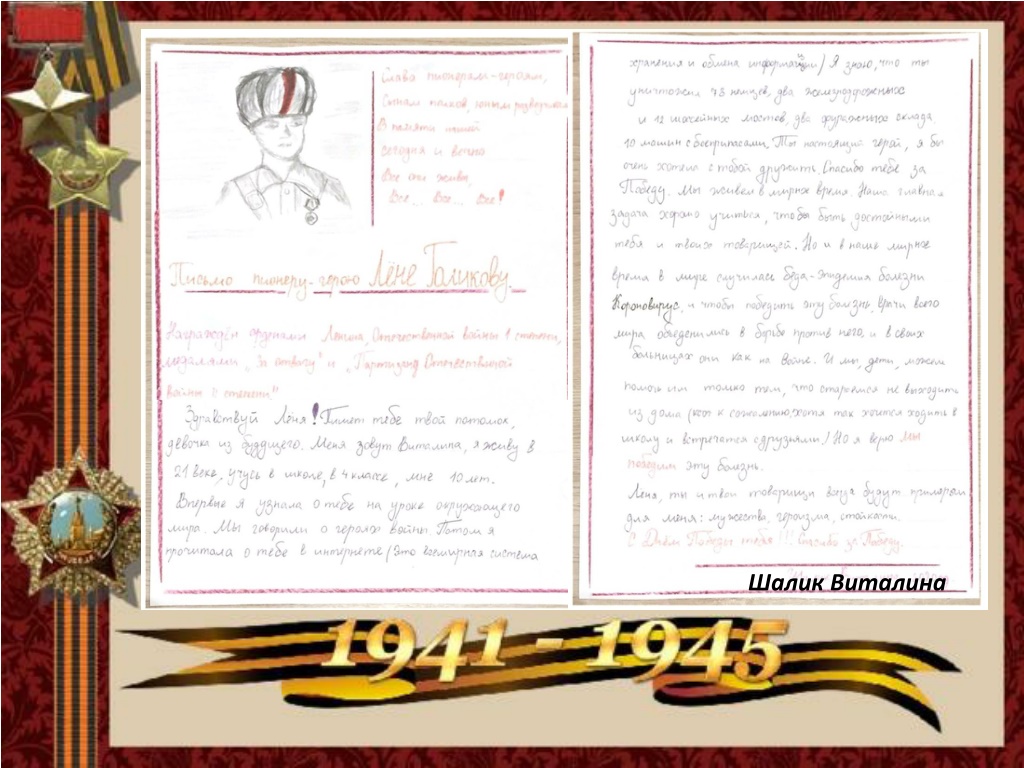 Слава пионерам-героям,
Сынам полков, юным разведчикам
В памяти нашей
сегодня и вечно
Все они живы,
Все... Все... Все!
Письмо пионеру-герою Лёне Голикову.
Награждён орденами Ленина, Отечественной войны 1 степени,
медалями „За отвагу" и „Партизану Отечественной
войны II степени"
Здравствуй Лёня! Пишет тебе твой потомок,
девочка из будущего. Меня зовут Виталина, я живу в
21 веке, учусь в школе, в 4 классе, мне 10 лет.
Впервые я узнала о тебе на уроке окружающего
мира. Мы говорили о героях войны. Потом я
прочитала о тебе в интернете (это всемирная система
хранения и обмена информации) Я знаю, что ты
уничтожил 78 немцев, два железнодорожных
и 12 шоссейных мостов, два фуражных склада,
10 машин с боеприпасами. Ты настоящий герой, я бы
очень хотела с тобой дружить. Спасибо тебе за
Победу. Мы живем в мирное время. Наша главная
задача хорошо учиться, чтобы быть достойными
тебя и твоих товарищей. Но и в наше мирное
время в мире случилась беда-эпидемия болезни
Короновирус, и чтобы победить эту болезнь, врачи всего
мира объеденились в борьбе против него, и в своих
больницах они как на войне. И мы, дети, можем
помочь им только тем, что стараемся не выходить
из дома (хотя так хочется ходить в
школу и встречатся с друзьями) Но я верю Мы
победим эту болезнь.
Лёня, ты и твои товарищи всегда будут примером
для меня: мужества, героизма, стойкости.
С Днём Победы тебя!!! Спасибо за Победу.
Шалик Виталина
1941 - 1945